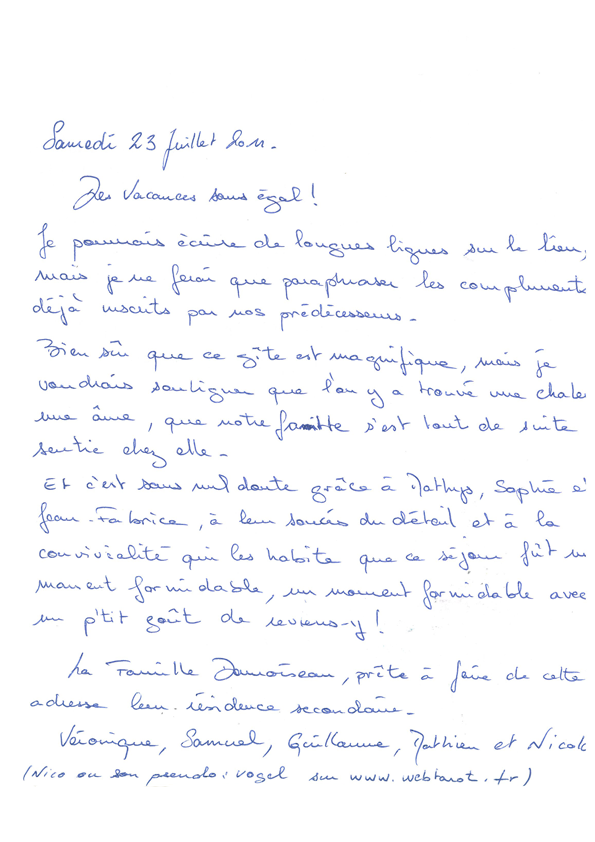 Samedi 23 Juillet 2011.
Des Vacances sans égal !
Je pourrais écrire de longues lignes sur le lieu,
mais je ne ferai que paraphraser les compliments
déjà inscrits par nos prédécesseurs.
Bien sûr que ce gîte est magnifique, mais je
voudrais souligner que l'on y a trouvé une chale
une âme, que notre famille s'est tout de suite
sentie chez elle.
Et c'est sans nul doute grâce à Mathys, Sophie e
Jean-Fabrice, à leur soucis du détail et à la
convivialité qui les habite que ce séjour fût un
moment formidable, un moment formidable avec
un p'tit goût de reviens-y !
La Famille Damoiseau, prête à faire de cette
adresse leur résidence secondaire.
Véronique, Samuel, Guillaume, Mathieu et Nicol
(Nico ou son pseudo : vogel sur www.webtarot.fr)